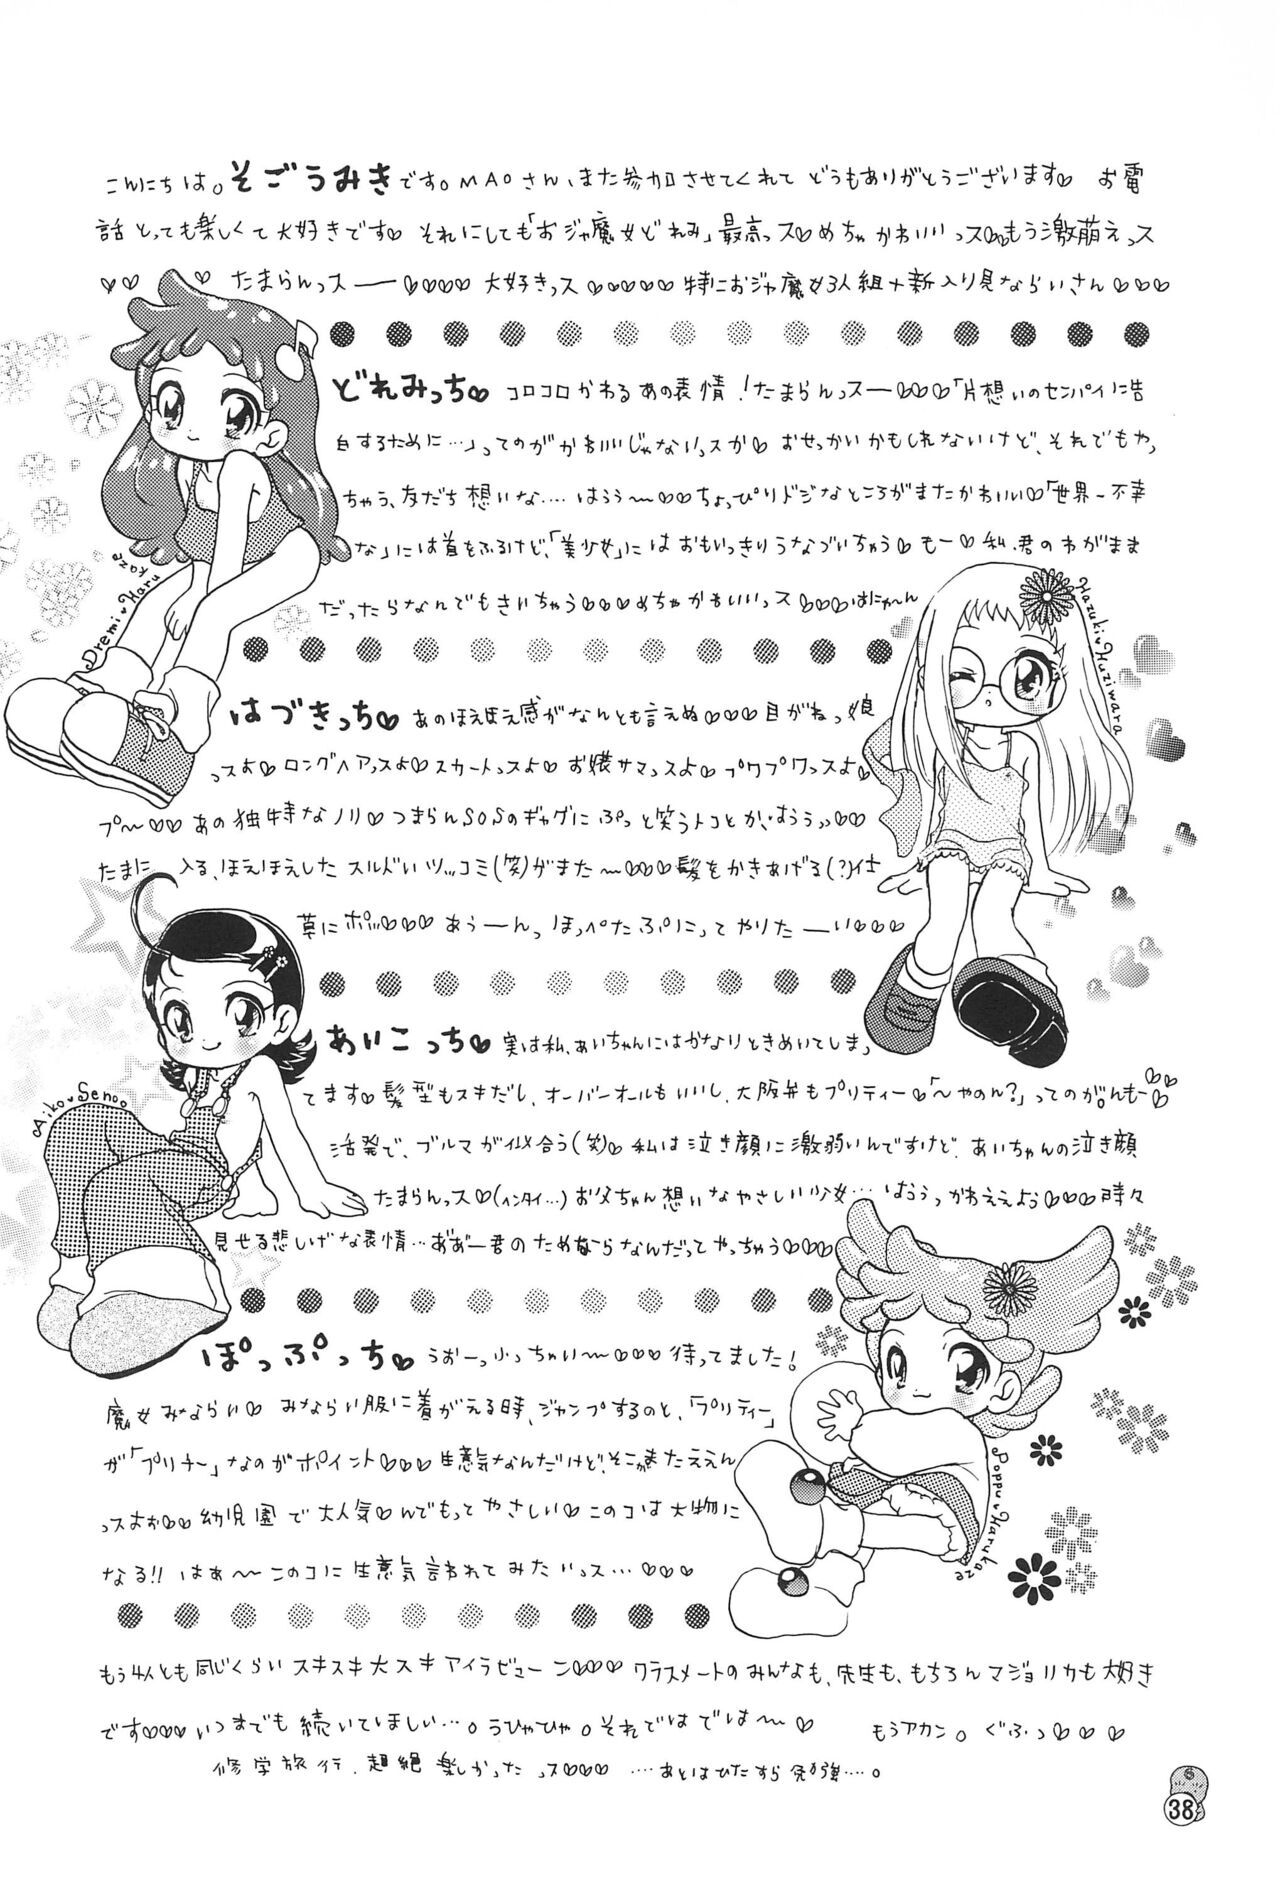 こんにちは。そごうみきです。MAOさん、また参加させてくれて どうもありがとうございます♡ お電
話とっても楽しくて大好きです♡ それにしても「おジャ魔女どれみ」最高っス♡めちゃかわいいっス♡♡もう激萌えっス
♡♡ ♡ たまらんっスー♡♡♡♡ 大好きっス♡♡♡♡♡特におジャ魔女3人組+新入り見ならいさん♡♡♡
どれみっち♡ コロコロかわるあの表情!たまらんっスー♡♡♡「片想いのセンパイに告
白するために…」ってのがかわいいじゃないっスか♡ おせっかいかもしれないけど、それでもやっ
ちゃう、友だち想いな…. はうう〜♡♡ちょっぴりドジなところがまたかわいい♡「世界一不幸
な」には首をふるけど、「美少女」にはおもいっきりうなづいちゃう♡もー♡私、君のわがまま
だったらなんでもきいちゃう♡♡♡めちゃかわいいっス♡♡♡はにゃ〜ん
Dremi♥Harukaze
Hazuki♥Huziwara
はづきっち♡ あのほえほえ感がなんとも言えぬ♡♡♡目がねっ娘
っスよ♡ロングヘアっスよ♡スカートっスよ♡お嬢サマっスよ♡プワプワっスよ♡
プ〜♡♡あの独特なノリ♡つまらんSOSのギャグにぷっと笑うトコとか、はううっ♡♡
たまに 入る、ほえほえした スルドいツッコミ(笑)がまた〜♡♡♡髪をかきあげる(?)仕
草にポッ♡♡♡ あぅーんっ ほっぺたぷにってやりたーい♡♡♡
あいこっち♡ 実は私、あいちゃんにはかなりときめいてしまっ
てます♡髪型もスキだし、オーバーオールもいいし、大阪弁もプリティー♡「〜やのん?」ってのがんもー♡♡♡
活発で、ブルマが似合う(笑)♡私は泣き顔に激弱いんですけど、あいちゃんの泣き顔
たまらんっス♡(ヘンタイ…)お父ちゃん想いなやさしい少女…はううっかわええよぅ♡♡♡時々
見せる悲しげな表情…ああー君のためならなんだってやっちゃう♡♡♡
Aiko♥Senoo
ぽっぷっち♡ うおーっ小っちゃい〜♡♡♡待ってました!
魔女みならい♡ みならい服に着がえる時、ジャンプするのと、「プリティー」
が「プリチー」なのがポイント♡♡♡生意気なんだけど、そこがまたええん
っスよぉ♡♡幼児園で大人気♡んでもってやさしい♡このコは大物に
なる!!はぁ〜このコに生意気言われてみたいっス…♡♡♡
Poppu♥Harukaze
もう4人とも同じくらいスキスキ大スキアイラビューン♡♡♡クラスメートのみんなも、先生も、もちろんマジョリカも大好き
です♡♡♡いつまでも続いてほしい…。うひゃひゃ。それではでは〜♡ もうアカン。ぐふっ♡♡♡
修学旅行、超絶楽しかったっス♡♡♡ ….あとはひたすら勉強….。
38